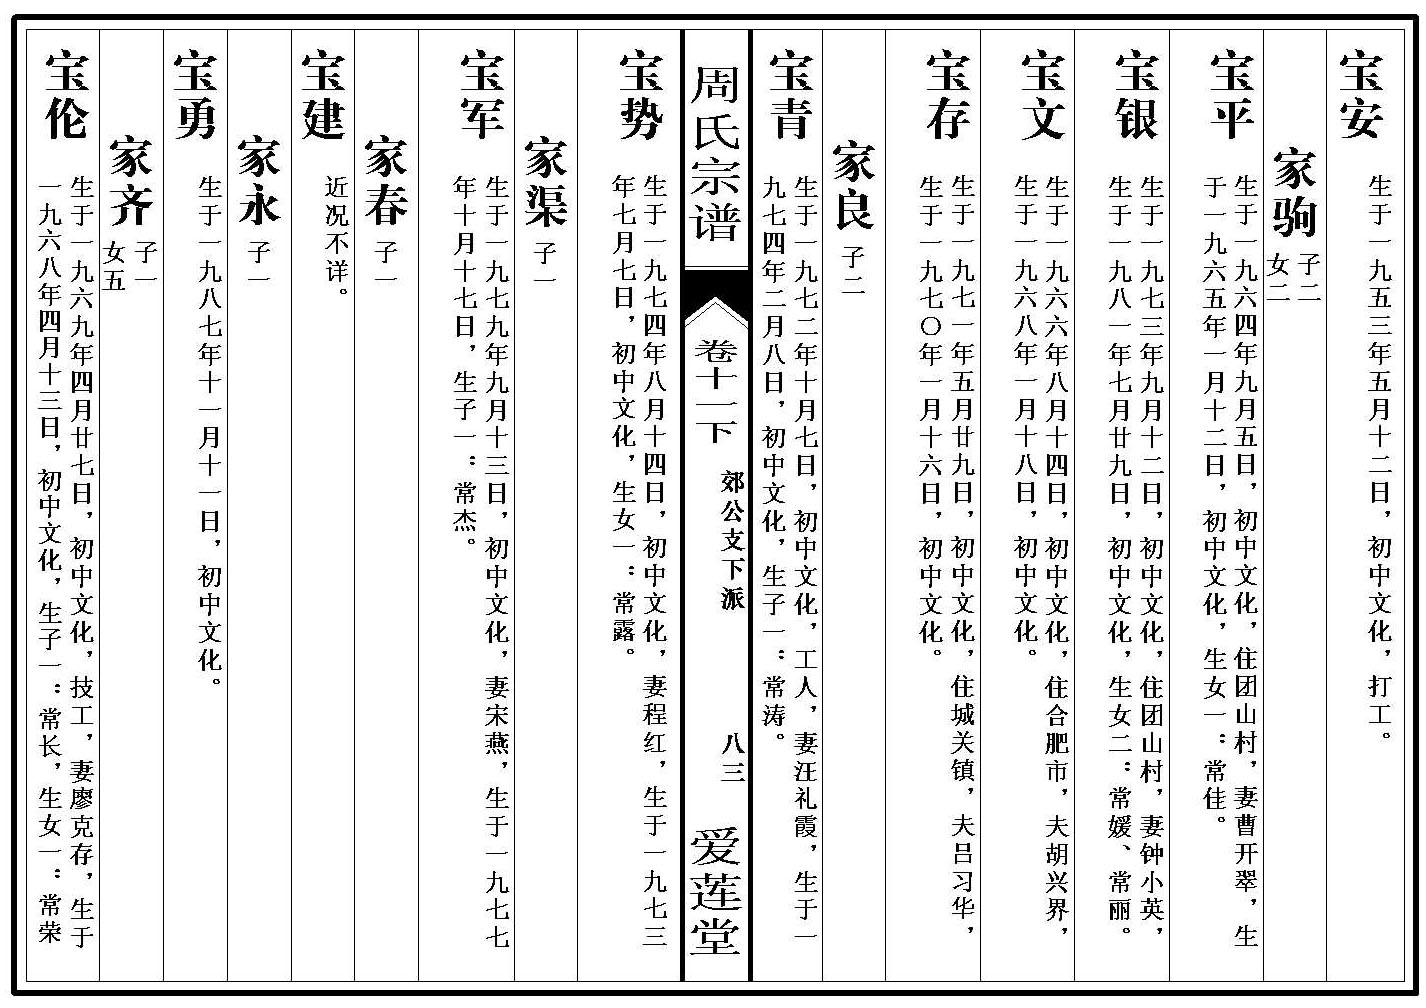 宝安
生于一九五三年五月十二日，初中文化，打工。
家驹
子二
女二
宝平
生于一九六四年九月五日，初中文化，住团山村，妻曹开翠，生
于一九六五年一月十二日，初中文化，生女一：常佳。
宝银
生于一九七三年九月十二日，初中文化，住团山村，妻钟小英，
生于一九八一年七月廿九日，初中文化，生女二：常媛、常丽。
宝文
生于一九六六年八月十四日，初中文化，住合肥市，夫胡兴界，
生于一九六八年一月十八日，初中文化。
宝存
生于一九七一年五月廿九日，初中文化，住城关镇，夫吕习华，
生于一九七〇年一月十六日，初中文化。
家良
子二
宝青
生于一九七二年十月七日，初中文化，工人，妻汪礼霞，生于一
九七四年二月八日，初中文化，生子一：常涛。
周氏宗谱
卷十一下
郊公支下派
八三
爱莲堂
宝势
生于一九七四年八月十四日，初中文化，妻程红，生于一九七三
年七月七日，初中文化，生女一：常露。
家渠
子一
宝军
生于一九七九年九月十三日，初中文化，妻宋燕，生于一九七七
年十月十七日，生子一：常杰。
家春
子一
宝建
近况不详。
家永
子一
宝勇
生于一九八七年十一月十一日，初中文化。
家齐
子一
女五
宝伦
生于一九六九年四月廿七日，初中文化，技工，妻廖克存，生于
一九六八年四月十三日，初中文化，生子一：常长，生女一：常荣